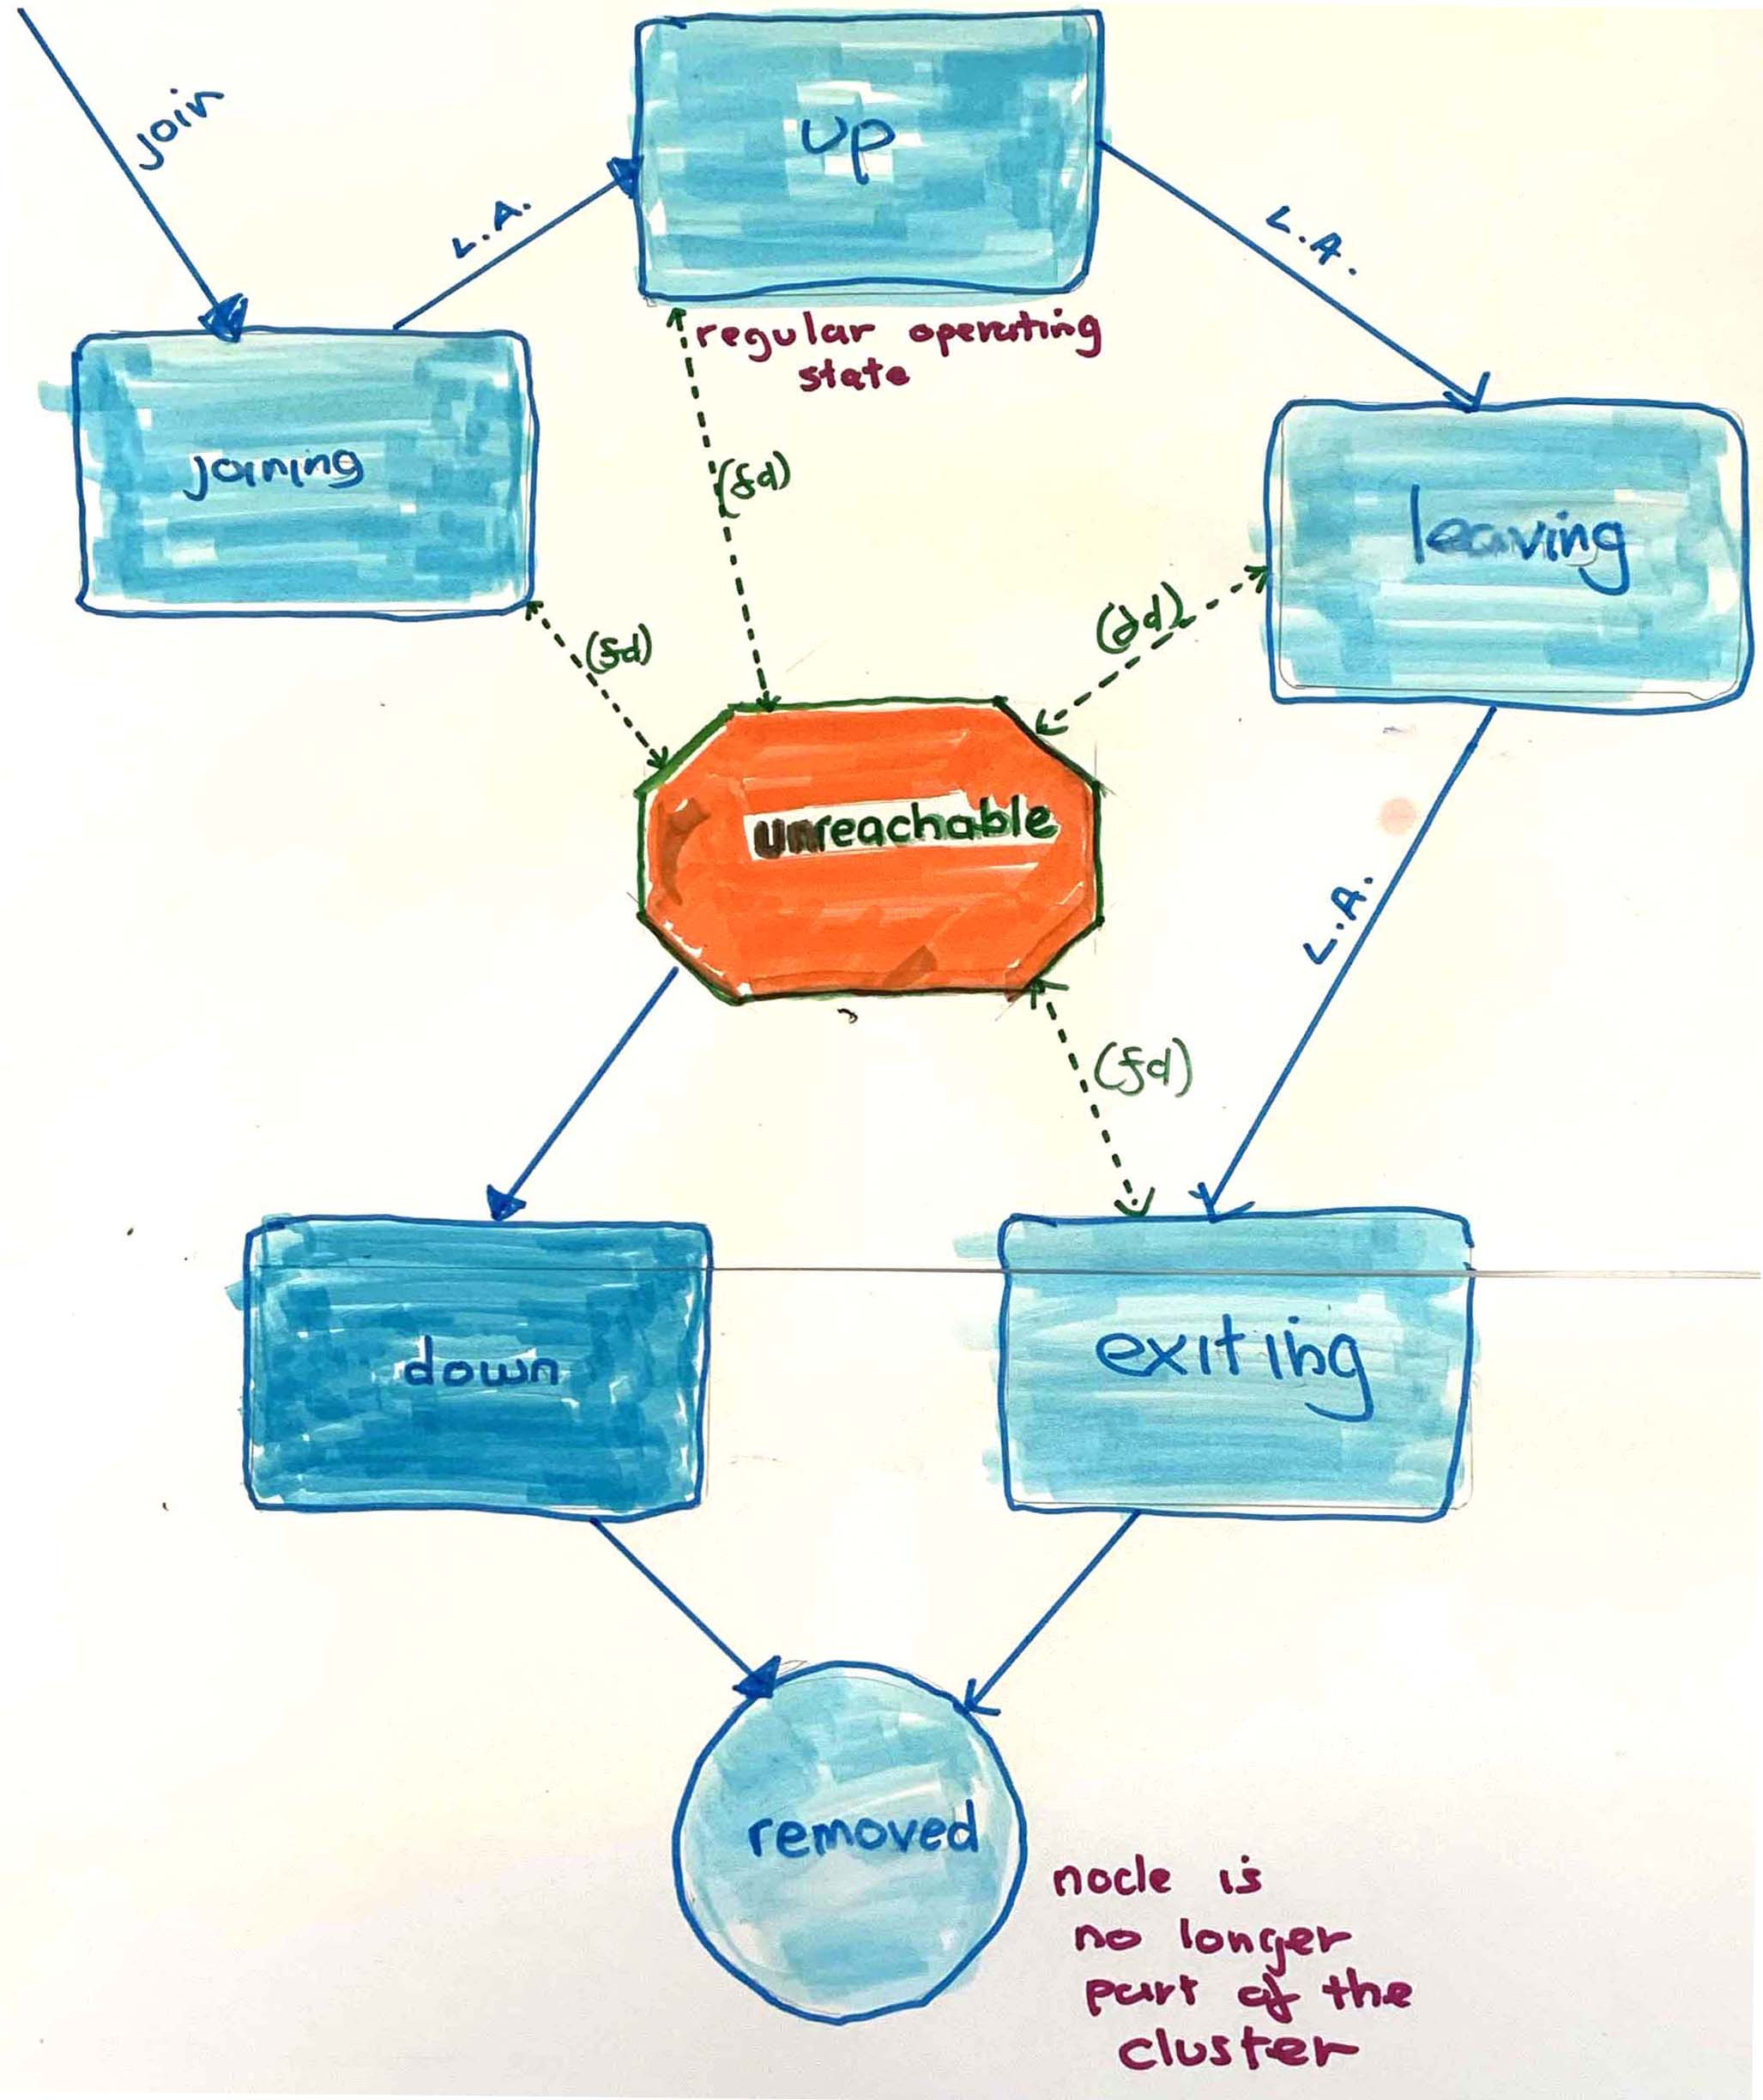 join
up
L.A.
L.A.
regular operating
state
joining
(fd)
leaving
(fd)
(fd)
unreachable
L.A.
(fd)
down
exiting
removed
node is
no longer
part of the
cluster